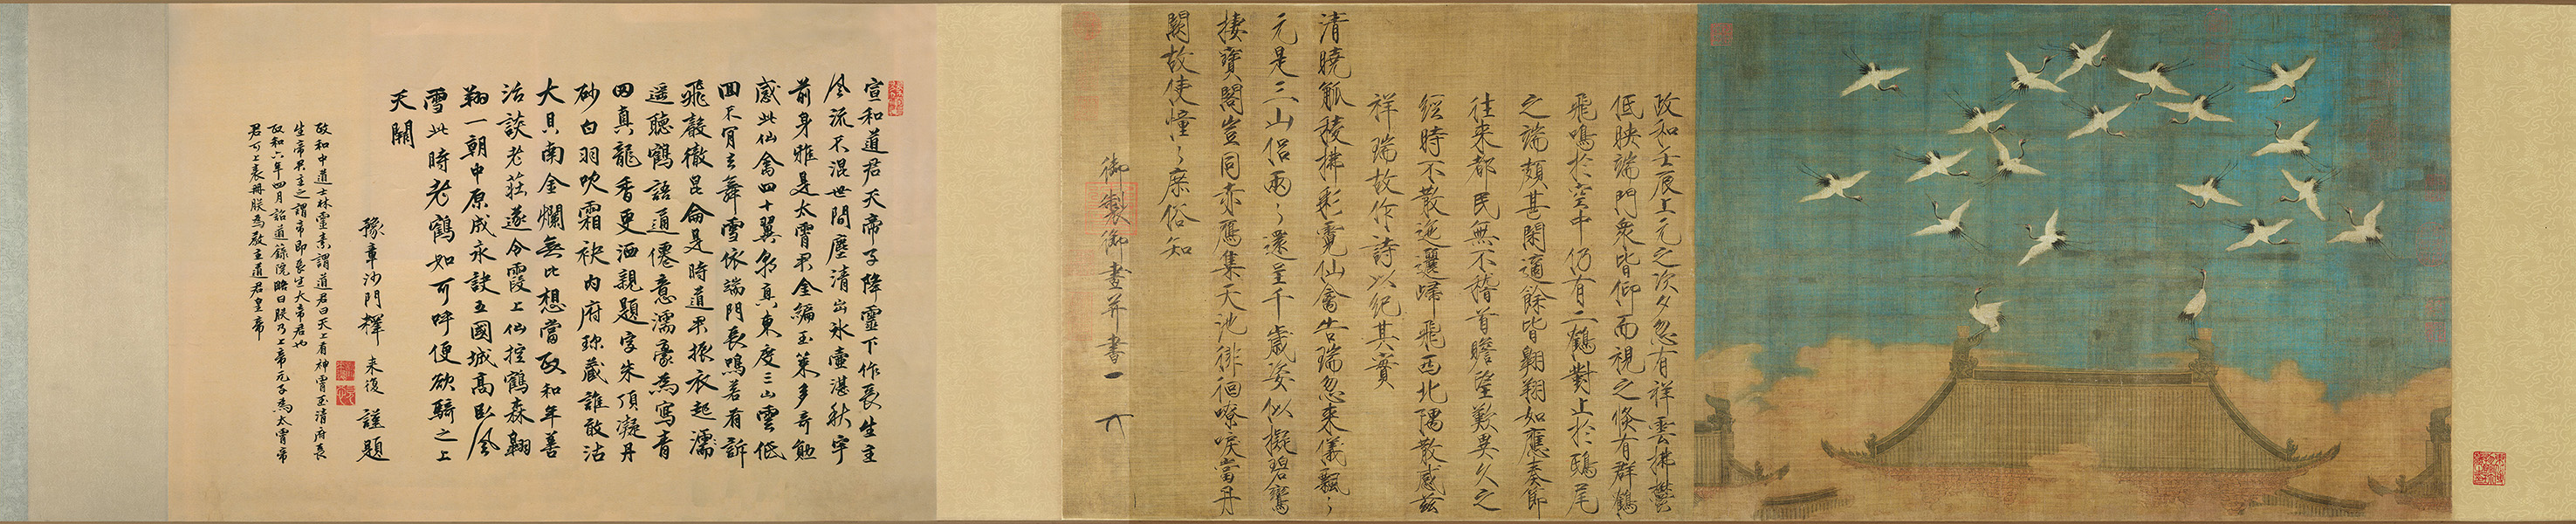 政和壬辰上元之次夕忽有祥雲拂鬱
低映端門衆皆仰而視之倏有群鶴
飛鳴於空中仍有二鶴對止於鴟尾
之端頗甚閑適餘皆翺翔如應奏節
往來都民無不稽首瞻望歎異久之
經時不散迤邐歸飛西北隅散感茲
祥瑞故作詩以紀其實
清曉觚稜拂彩霓仙禽告瑞忽來儀飄〻
元是三山侶兩〻還呈千歲姿似擬碧鸞
棲寶閣豈同赤鴈集天池徘徊嘹唳當丹
闕故使憧〻庶俗知
御製御畫并書
宣和道君天帝子降靈下作長生主
風流不混世間塵清出氷壺湛秋宇
前身雅是太霄君金編玉策多奇勉
感此仙禽四十翼朝真東度三山雲低
回不肯去舞雪依端門長鳴若有訴
飛聲徹昆侖是時道君振衣起濡
遥聽鶴語通僊意濡豪為寫青
田真龍香更洒親題字朱頂凝丹
砂白羽吹霜袂内府珎藏誰敢沽
大貝南金爛無比想當政和年善
話談老莊遂令霞上仙控鶴森翺
翔一朝中原成永訣五國城高臥風
雪此時老鶴如可呼便欲騎之上
天關
豫章沙門釋 来復 謹題
政和中道士林靈素謂道君曰天上有神霄玉清府長
生帝君主之謂帝即長生大帝君也
政和六年四月詔道錄院略曰朕乃上帝元子為太霄帝
君可上表冊朕為教主道君皇帝